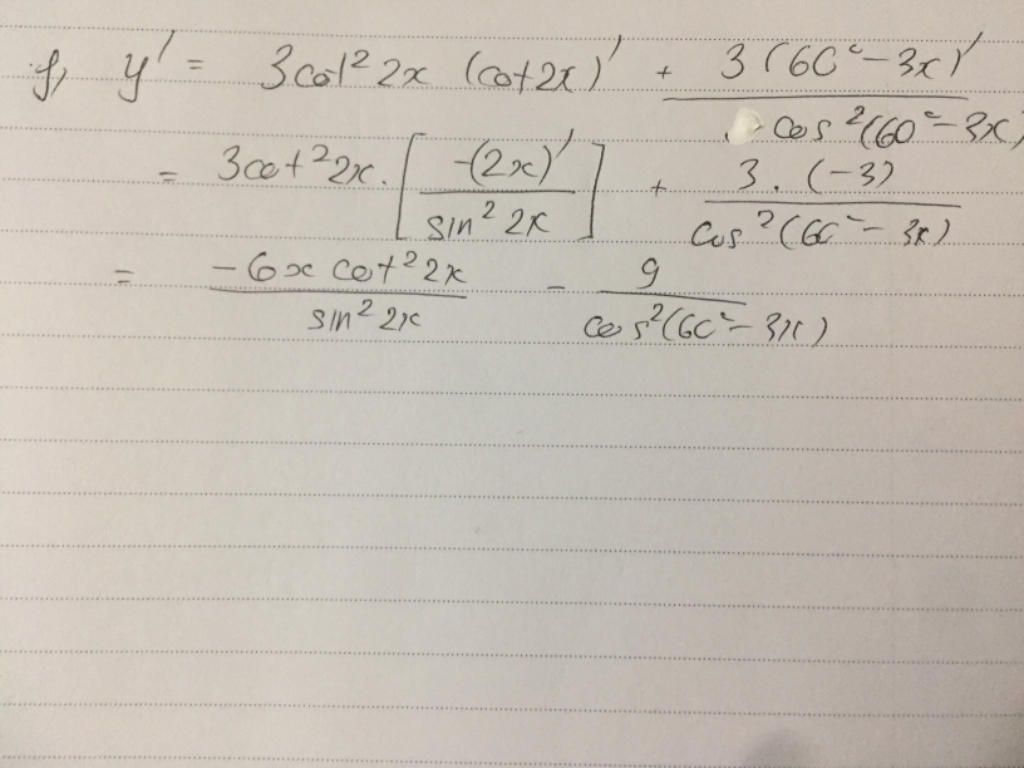 f, y' = 3cot² 2x (cot2x)' + 3(60° - 3x)' / cos²(60° - 3x)
= 3cot²2x. [ -(2x)' / sin² 2x ] + 3. (-3) / cos²(60° - 3x)
= -6x cot²2x / sin² 2x - 9 / cos²(60° - 3x)